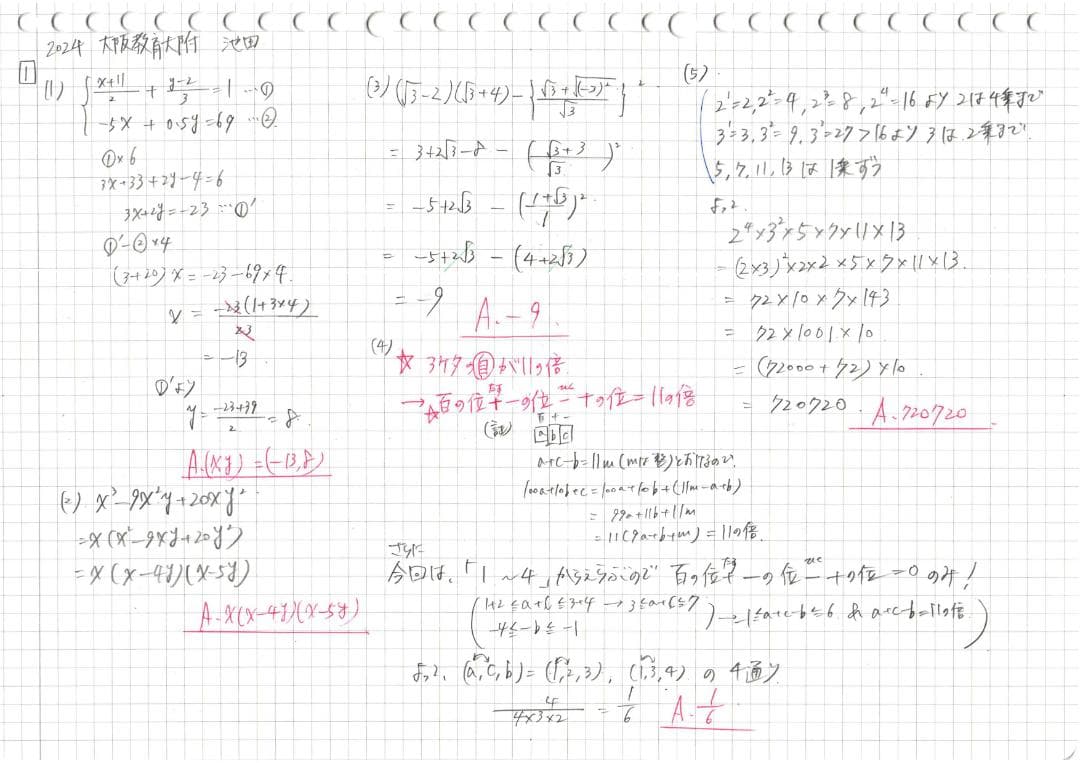 2024 大阪教育大附 池田
1
(1) { (x+11)/2 + (y-2)/3 = 1 …①
-5x + 0.5y = 69 …②
①×6
3x+33+2y-4=6
3x+2y=-23 …①'
①'-②×4
(3+20)x = -23-69×4
x = -23(1+3×4)/23
= -13
①'より
y = (-23+39)/2 = 8
A.(x,y)=(-13,8)
(2) x³-9x²y+20xy²
=x(x²-9xy+20y²)
=x(x-4y)(x-5y)
A. x(x-4y)(x-5y)
(3) (√3-2)(√3+4)-{(√3+√(-3)²)/√3}²
= 3+2√3-8 - ((√3+3)/√3)²
= -5+2√3 - ((1+√3)/1)²
= -5+2√3 - (4+2√3)
= -9
A. -9
(4) ☆ 3ケタの自が11の倍
→☆百の位+たす一の位-ひく十の位=11の倍
(証) 百十一
a b c
a+c-b=11m(mは整)とおけるので、
100a+10b+c=100a+10b+(11m-a+b)
= 99a+11b+11m
= 11(9a+b+m)=11の倍.
さらに
今回は、「1~4」からえらぶので 百の位+たす一の位-ひく十の位=0のみ!
(1+2≦a+c≦3+4→3≦a+c≦7
-4≦-b≦-1) →-1≦a+c-b≦6 & a+c-b=11の倍
よって、(a,c,b)=(1,2,3),(1,3,4)の4通り
4/(4×3×2) = 1/6 A. 1/6
(5)
2¹=2,2²=4,2³=8,2⁴=16より2は4乗まで
3¹=3,3²=9,3³=27>16より3は2乗まで.
5,7,11,13は1乗ずつ
よって.
2⁴×3²×5×7×11×13
=(2×3)²×2×2×5×7×11×13
= 72×10×7×143
= 72×1001×10
= (72000+72)×10
= 720720. A. 720720